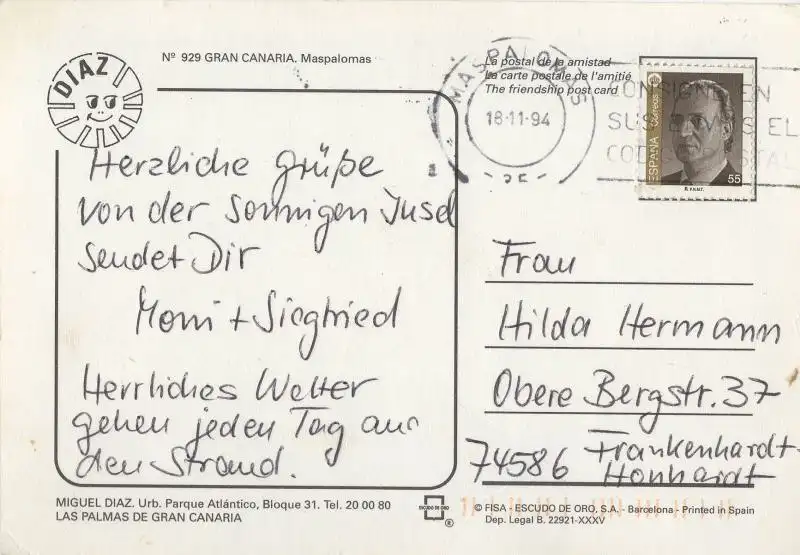 Nº 929 GRAN CANARIA. Maspalomas
DIAZ
La postal de la amistad
La carte postale de l'amitié
The friendship post card
MASPALOMAS
18-11-94
CONSIGNE EN
SUS ENVIOS EL
CODIGO POSTAL
ESPAÑA
Correos
55
R.F.N.M.T.
Herzliche Grüße
von der sonnigen Insel
sendet Dir
Moni + Siegfried
Herrliches Wetter
gehen jeden Tag an
den Strand.
Frau
Hilda Hermann
Obere Bergstr. 37
74586 Frankenhardt-
Honhardt
MIGUEL DIAZ. Urb. Parque Atlántico, Bloque 31. Tel. 20 00 80
LAS PALMAS DE GRAN CANARIA
ESCUDO DE ORO
®
© FISA - ESCUDO DE ORO, S.A. - Barcelona - Printed in Spain
Dep. Legal B. 22921-XXXV